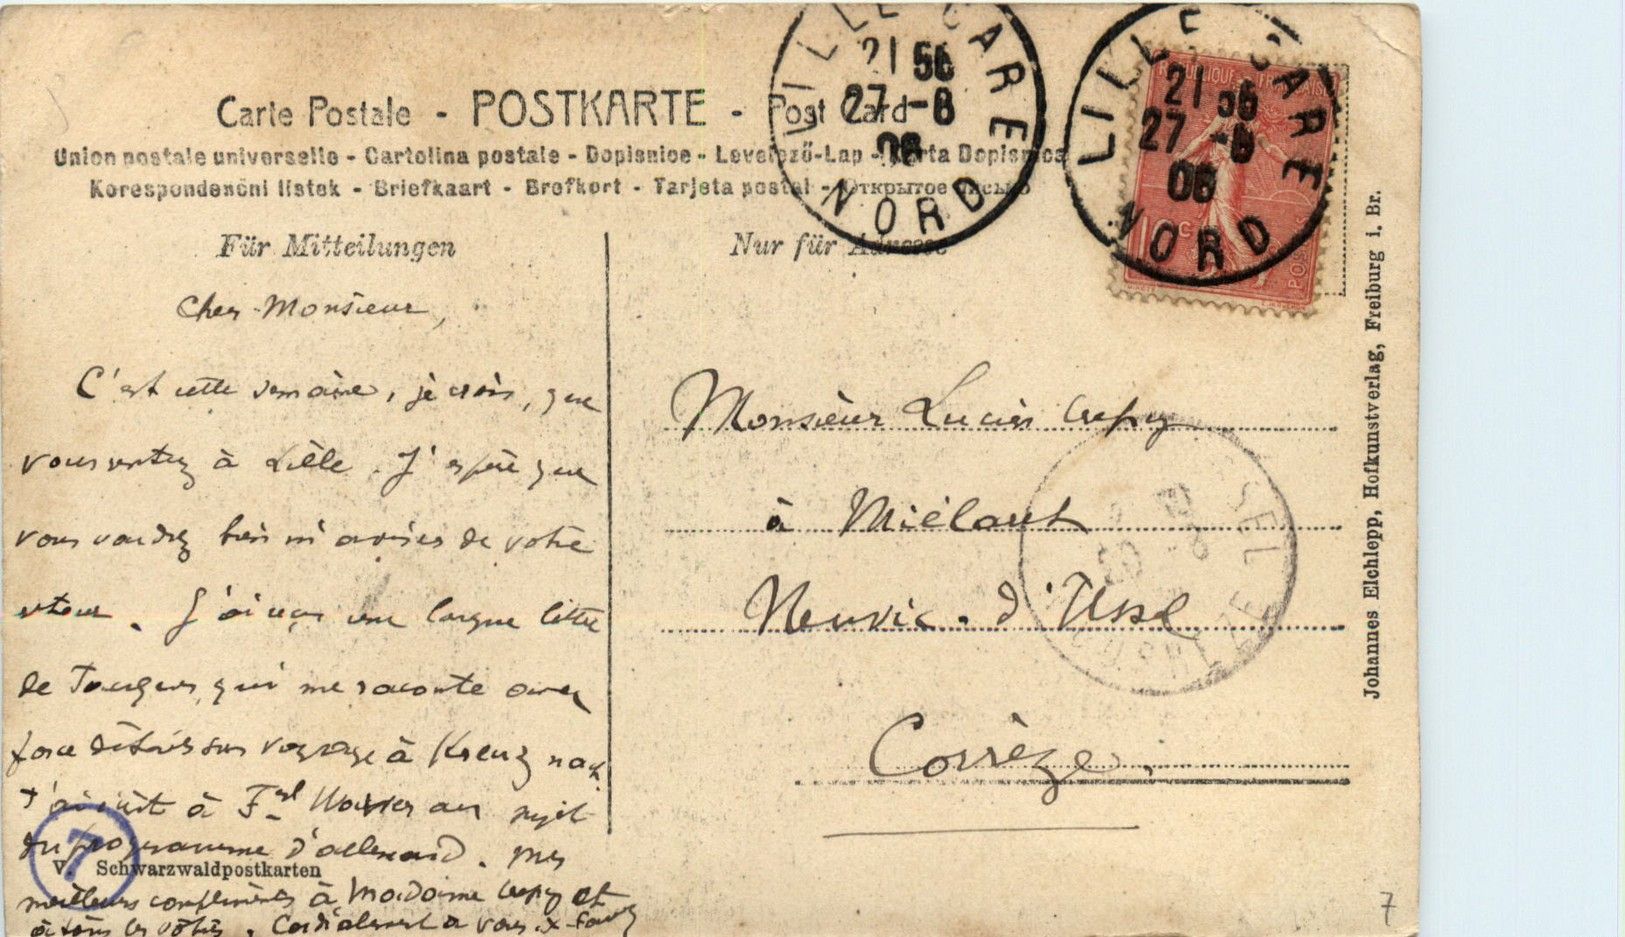 Carte Postale - POSTKARTE - Post Card
Union postale universelle - Cartolina postale - Dopisnice - Levelező-Lap - Karta Dopisnica
Korespondenční listek - Briefkaart - Brefkort - Tarjeta postal - Открытое письмо
Für Mitteilungen
Nur für Adresse
LILLE GARE
21 56
27 - 8
06
NORD
LILLE GARE
21 56
27 - 8
06
NORD
REPUBLIQUE FRANÇAISE
10 c
POSTES
Cher Monsieur,
C'est cette semaine, je crois, que
vous rentrez à Lille. J'espère que
vous voudrez bien m'aviser de votre
retour. J'ai reçu une longue lettre
de qui me raconte avec
force détails son voyage à Kreuznach
J'ai écrit à au sujet
du programme d'allemand. Mes
meilleurs compliments à Madame Crepy et
à tous les vôtres. Cordialement à vous.
Monsieur Lucien Crepy
à Miélaut
Neuvic. d'Ussel
Corrèze.
USSEL
CORREZE
7
V. Schwarzwaldpostkarten
Johannes Elchlepp, Hofkunstverlag, Freiburg i. Br.
7